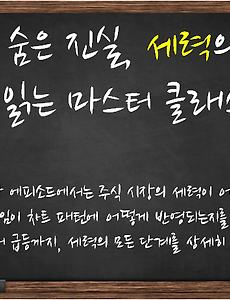 숨은 진실, 세력의
읽는 마스터 클래스
에피소드에서는 주식 시장의 세력이 어
임이 차트 패턴에 어떻게 반영되는지를
급등까지, 세력의 모든 단계를 상세히